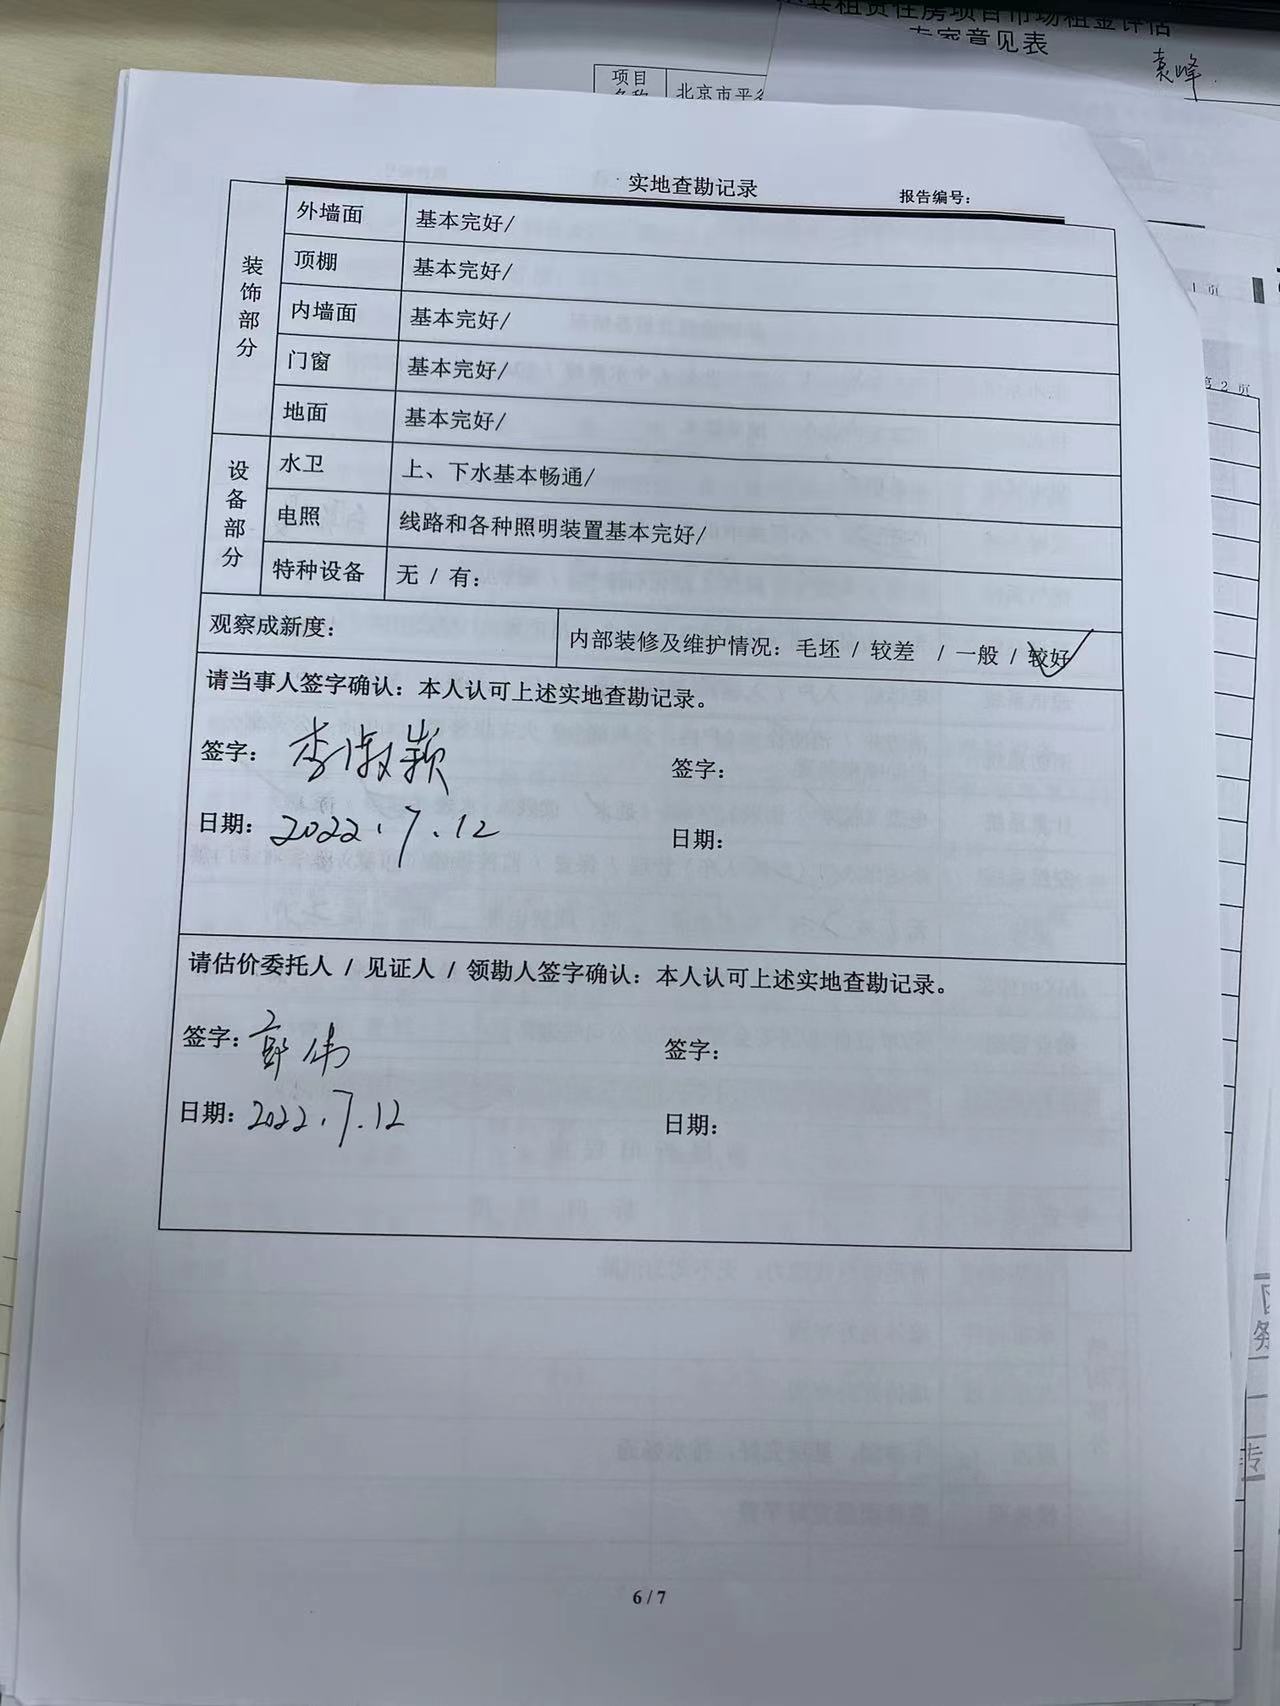 共租赁住房项目市场租金评估
专家意见表
袁峰
项目
名称
北京市平
实地查勘记录
报告编号：
装饰部分
外墙面 基本完好/
顶棚 基本完好/
内墙面 基本完好/
门窗 基本完好/
地面 基本完好/
设备部分
水卫 上、下水基本畅通/
电照 线路和各种照明装置基本完好/
特种设备 无 / 有：
观察成新度： 内部装修及维护情况：毛坯 / 较差 / 一般 / 较好
请当事人签字确认：本人认可上述实地查勘记录。
签字：李 颖 签字：
日期：2022.7.12 日期：
请估价委托人 / 见证人 / 领勘人签字确认：本人认可上述实地查勘记录。
签字：郭伟 签字：
日期：2022.7.12 日期：
6 / 7
1 页
第 2 页
务
专